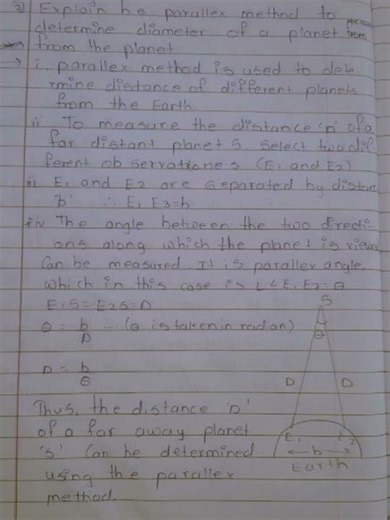 2) Explain he parallex method to
determine diameter of a planet from
from the planet
→ i. parallex method is used to dete
rmine distance of different planets
from the Earth
ii To measure the distance 'D' of a
far distant planet S select two dif
ferent observatione s (E1 and E2)
iii E1 and E2 are separated by distan
'b' ∴ E1 E2=b
iv The angle between the two directi
ons along which the planet is view
Can be measured It is parallex angle,
which in this case is L<E1E2=θ
E1S=E2S=D
θ = b/D ... (θ is taken in radian)
D = b/θ
Thus, the distance 'D'
of a far away planet
's' Can be determined
using the parallex
method.
S
θ
D D
E1 E2
← b →
Earth